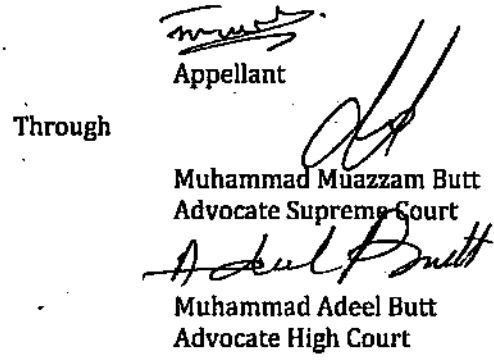 Appellant
Through
Muhammad Muazzam Butt
Advocate Supreme Court
Adeel Butt
Muhammad Adeel Butt
Advocate High Court